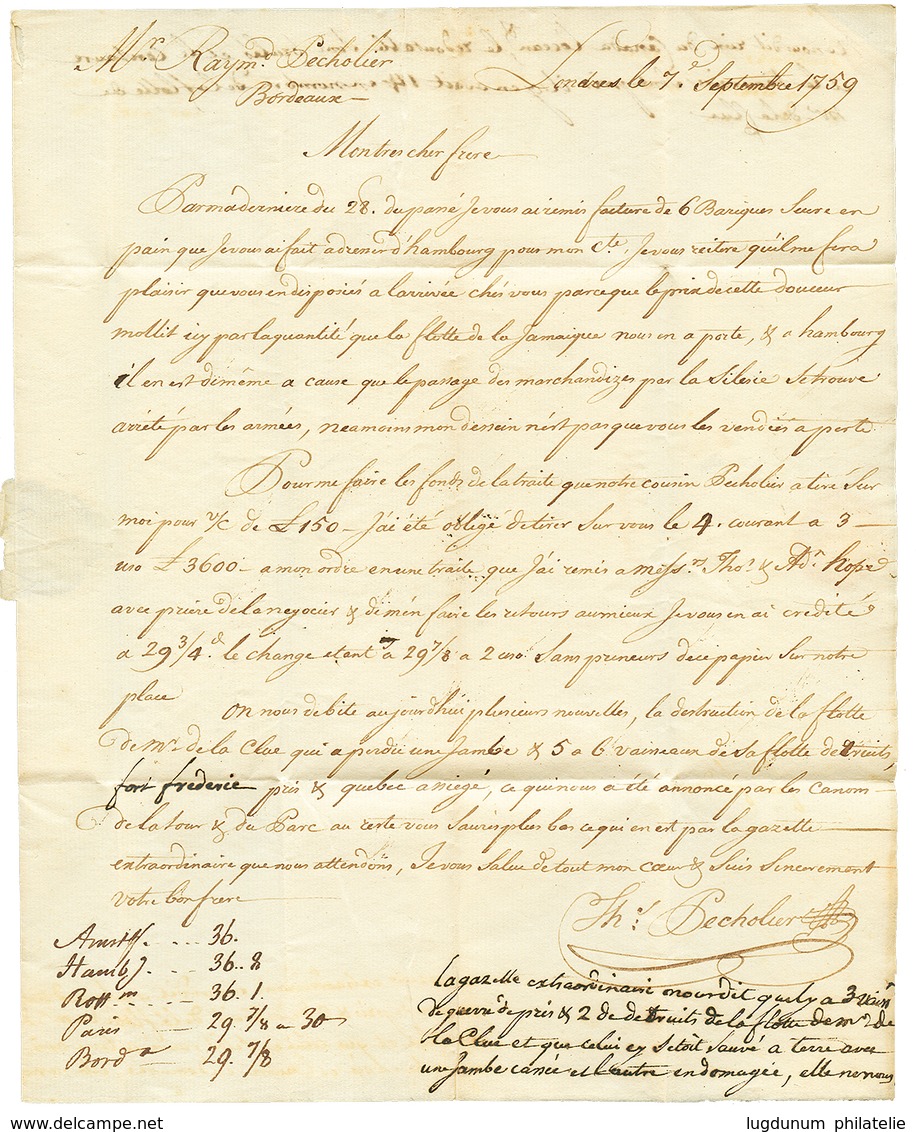 Mr. Raymd. Pecholier
Bordeaux
Londres le 7e. Septembre 1759
Mon tres cher frere
Par ma derniere du 28. du passé Je vous ai remis facture de 6 Bariques Sucre en
pain que Je vous ai fait adresser d'hambourg pour mon Cte. Je vous reitere qu'il me fera
plaisir que vous en disposiés a l'arrivée chés vous parceque le prix de cette douceur
mollit icy par la quantité que la flotte de la Jamaique nous en a porté, & a hambourg
il en est de même a cause que le passage des marchandizes par la Silesie Se trouve
arrété par les armées, neamoins mon dessein n'est pas que vous les vendiés a perte
Pour me faire les fonds de la traite que notre cousin Pecholier a tiré Sur
moi pour v/c de £150 - J'ai été obligé de tirer Sur vous le 4. courant a 3
uso £3600 - a mon ordre en une traite que J'ai remis a Messrs. Thos. & Adn. hope
avec priere de la negocier & de m'en faire les retours au mieux Je vous en ai credité
a 29 3/4 d. le change etant a 29 7/8 a 2 uso Sans preneurs de ce papier Sur notre
place
On nous debite aujourdhui plusieurs nouvelles, la destruction de la flotte
de Mr. de la Clue qui a perdu une Jambe & 5 a 6 vaisseaux de Sa flotte detruits,
fort frederic pris & quebec assiegé, ce qui nous a été annoncé par les canons
de la tour & du Parc au reste vous Saurés plus bas ce qui en est par la gazette
extraordinaire que nous attendons, Je vous Salue de tout mon cœur & Suis Sincerement
votre bon frere
Ths. Pecholier
Amstm. ... 36.
Hambg. ... 36.. 8
Rottm ... 36. 1.
Paris ... 29. 7/8 a 30
Bordx ... 29. 7/8
la gazette extraordinaire nous dit quel y a 3 vaiss
de guerre de pris & 2 de detruits de la flotte de mr. de
la Clue et que celui cy S'etoit Sauvé a terre avec
une Jambe cassée et l'autre endomagée, elle ne nous
lugdunum philatelie